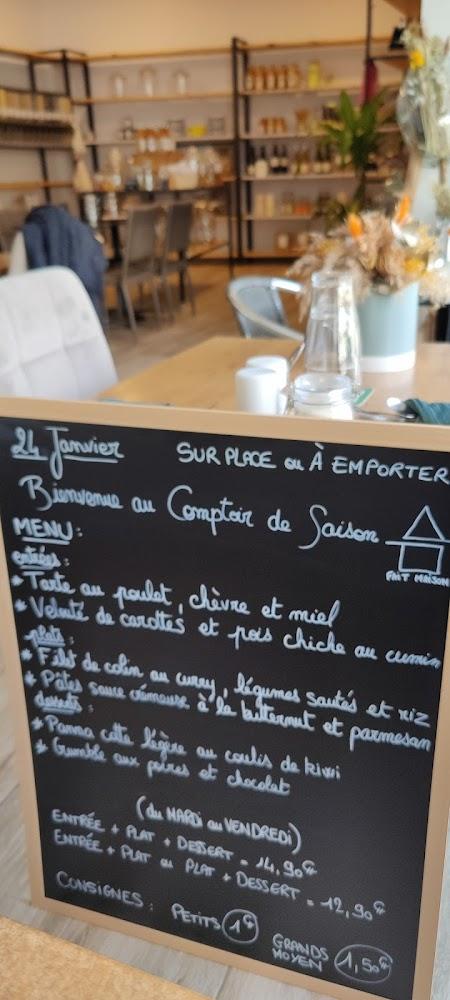 24 Janvier
SUR PLACE ou À EMPORTER
Bienvenue au Comptoir de Saison
FAIT MAISON
MENU :
entrées :
* Tarte au poulet, chèvre et miel
* Velouté de carottes et pois chiche au cumin
plats :
* Filet de colin au curry, légumes sautés et riz
* Pâtes sauce crémeuse à la butternut et parmesan
desserts :
* Panna cotta légère au coulis de kiwi
* Crumble aux poires et chocolat
(du MARDI au VENDREDI)
ENTRÉE + PLAT + DESSERT = 14,90€
ENTRÉE + PLAT ou PLAT + DESSERT = 12,90€
CONSIGNES : PETITS 1€
GRANDS MOYEN 1,50€